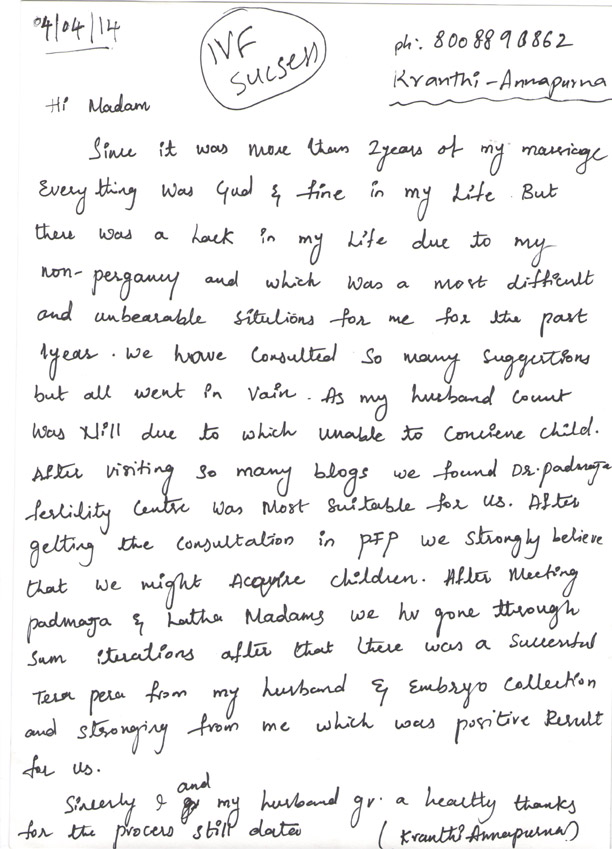 04/04/14
IVF
Sucsess
ph: 8008898862
Kranthi-Annapurna
Hi Madam
Since it was more than 2years of my marriage
Everything was Gud & fine in my Life But
there was a Lack in my Life due to my
non-pergancy and which was a most difficult
and unbearable Situtions for me for the past
1year. We have Consulted So many Suggestions
but all went in Vain. As my husband Count
was Nill due to which unable to Conciene child.
After visiting So many blogs we found Dr.padmaja
fertility Centre was Most Suitable for Us. After
getting the Consultation in PFP we Strongly believe
that we might Acquire children. After Meeting
padmaja & Latha Madams we hv gone through
Sum iterations after that there was a Successful
Tesa pesa from my husband & Embryo Collection
and Stronging from me which was positive Result
for us.
Sincerly I and my husband gv. a healtty thanks
for the process still dated (Kranthi Annapurna)